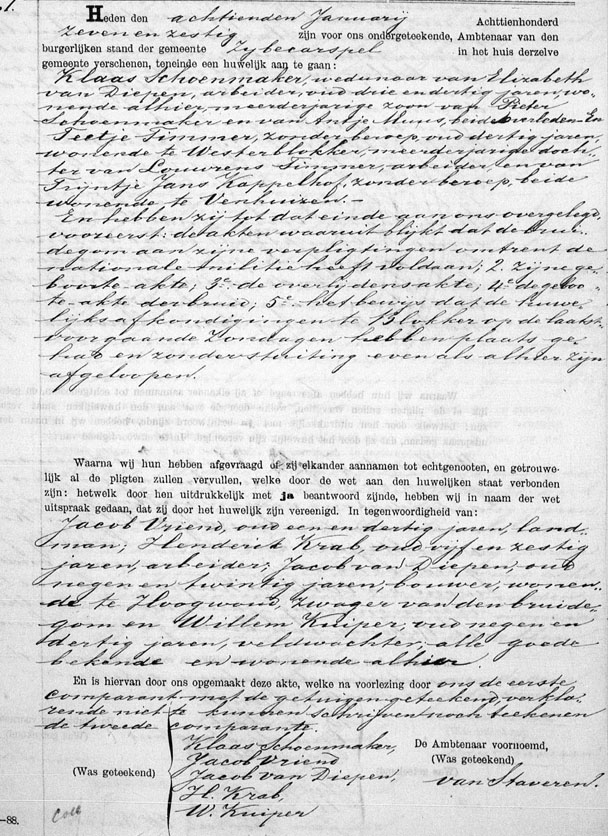 Heden den achttienden Januarij Achttienhonderd
zeven en zestig zijn voor ons ondergeteekende, Ambtenaar van den
burgerlijken stand der gemeente Zybecarspel in het huis derzelve
gemeente verschenen, teneinde een huwelijk aan te gaan:
Klaas Schoenmaker, weduwnaar van Elizabeth
van Diepen, arbeider, oud drie en dertig jaren, wo-
nende alhier, meerderjarige zoon van Pieter
Schoenmaker en van Antje Muus, beide overleden - En
Teetje Timmer, zonder beroep, oud dertig jaren,
wonende te Westerblokker, meerderjarige doch-
ter van Louwrens Timmer, arbeider, en van
Trijntje Jans Kappelhof, zonder beroep, beide
wonende te Venhuizen. -
En hebben zij tot dat einde aan ons overgelegd,
vooreerst: de akten waaruit blijkt dat de brui-
degom aan zijne verpligtingen omtrent de
nationale militie heeft voldaan; 2. zijne ge-
boorte-akte; 3e de overlijdensakte; 4e de geboor-
te-akte der bruid; 5e het bewijs dat de huwe-
lijksafkondigingen te Blokker op de laatst-
voorgaande Zondagen hebben plaats ge-
had en zonder stuiting even als alhier zijn
afgeloopen.
Waarna wij hun hebben afgevraagd of zij elkander aannamen tot echtgenooten, en getrouwe-
lijk al de pligten zullen vervullen, welke door de wet aan den huwelijken staat verbonden
zijn: hetwelk door hen uitdrukkelijk met ja beantwoord zijnde, hebben wij in naam der wet
uitspraak gedaan, dat zij door het huwelijk zijn vereenigd. In tegenwoordigheid van:
Jacob Vriend, oud een en dertig jaren, land-
man; Henderik Krab, oud vijf en zestig
jaren, arbeider; Jacob van Diepen, oud
negen en twintig jaren, bouwer, wonen-
de te Hoogwoud, zwager van den bruide-
gom en Willem Kuiper, oud negen en
dertig jaren, veldwachter, alle goede
bekende en wonende alhier.
En is hiervan door ons opgemaakt deze akte, welke na voorlezing door ons de eerste
comparant met de getuigen geteekend, verkla-
rende niet te kunnen schrijven noch teekenen
de tweede comparante.
Klaas Schoenmaker, De Ambtenaar voornoemd,
Jacob Vriend (Was geteekend)
(Was geteekend) Jacob van Diepen, van Staveren.
H. Krab,
W. Kuiper
-88. Coll